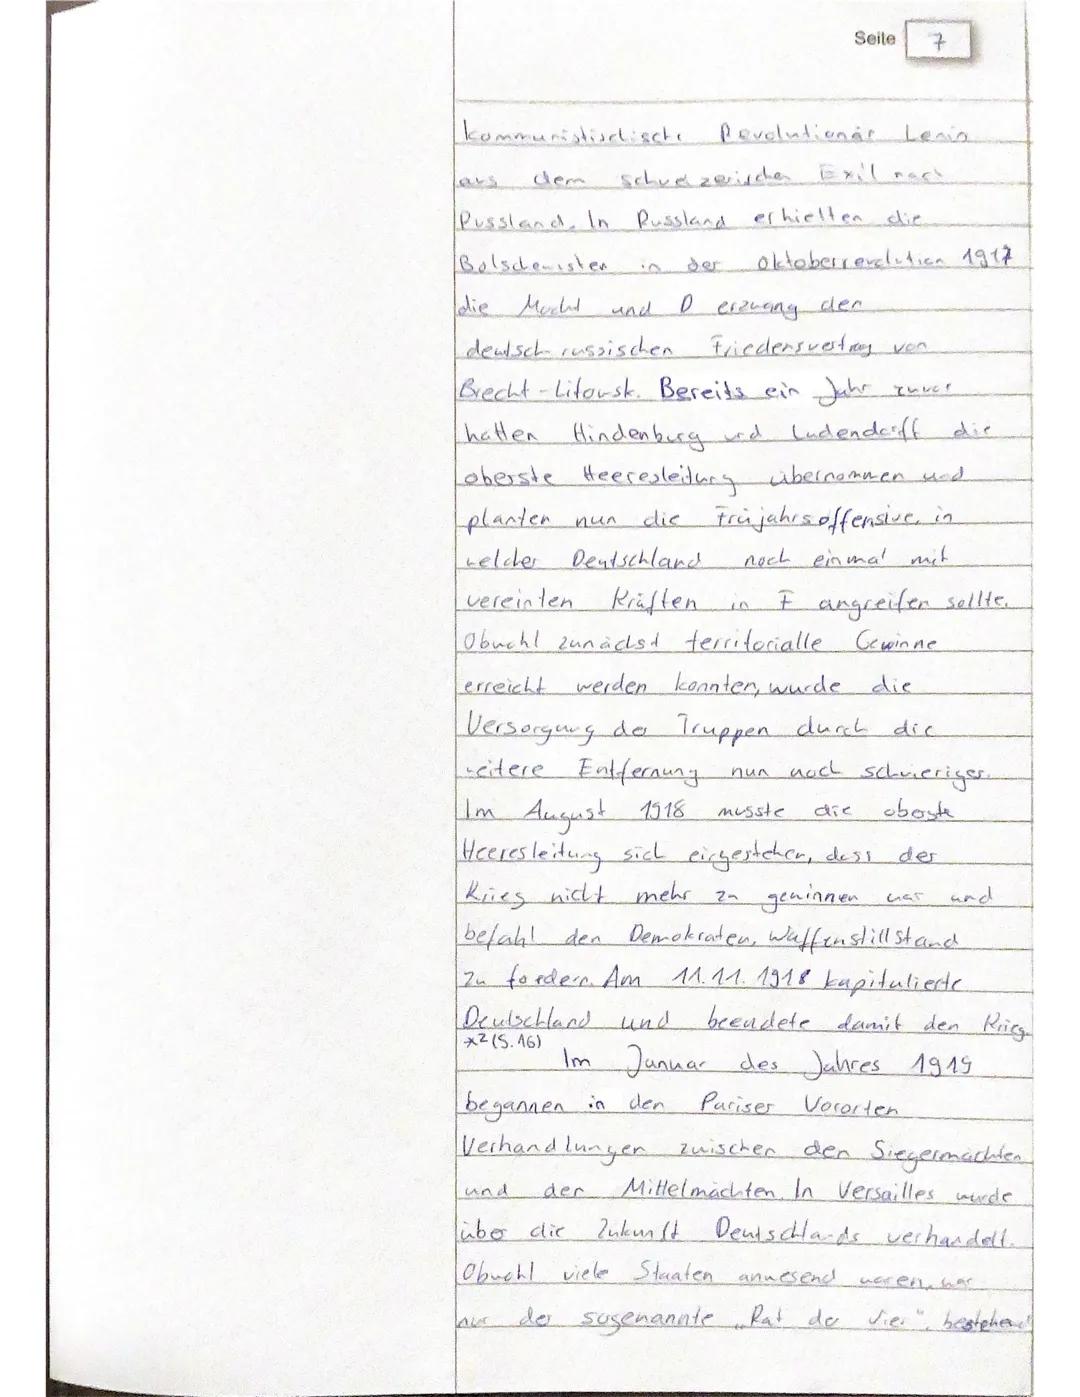 Seite 7
kommunistischische Revolutionär Lenin
aus dem schweizerischen Exil nach
Russland. In Russland erhielten die
Bolschewisten in der Oktoberrevolution 1917
die Macht und D erzwang den
deutsch-russischen Friedensvertrag von
Brecht-Litowsk. Bereits ein Jahr zuvor
hatten Hindenburg und Ludendorff die
oberste Heeresleitung übernommen und
planten nun die Früjahrsoffensive, in
welcher Deutschland noch einmal mit
vereinten Kräften in F angreifen sollte.
Obwohl zunächst territorialle Gewinne
erreicht werden konnten, wurde die
Versorgung der Truppen durch die
weitere Entfernung nun noch schwieriger.
Im August 1918 musste die oberste
Heeresleitung sich eingestehen, dass der
Krieg nicht mehr zu gewinnen war und
befahl den Demokraten, Waffenstillstand
zu fordern. Am 11.11.1918 kapitulierte
Deutschland und beendete damit den Krieg.
*2 (S.16)
Im Januar des Jahres 1919
begannen in den Pariser Vororten
Verhandlungen zwischen den Siegermächten
und den Mittelmächten. In Versailles wurde
über die Zukunft Deutschlands verhandelt.
Obwohl viele Staaten anwesend waren, war
nur der sogenannte „Rat der Vier", bestehend